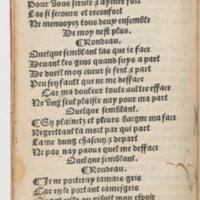 Pour vous seruir & aymer fort
Las si secours et reconfort
Ne menuoyez tous deux ensemble
De moy nest plus.
¶Rondeau.
Quelque semblant las que te face
Deuant les gens quand suys a part
De dueil mon cueur se fent & part
Peu sen fault que ne me deface
Car ma douleur toute aultre efface
Ne vng seul plaisir nay pour ma part
Quelque semblant.
¶De plainctz et pleurs baigne ma face
Regrettant la mort par qui part
Lame dung chascun & depart
Ne pas nay paour quel me defface
Quelque semblant.
¶Rondeau.
¶Je ne porteray iamais gris
Car en le portant iamesgris